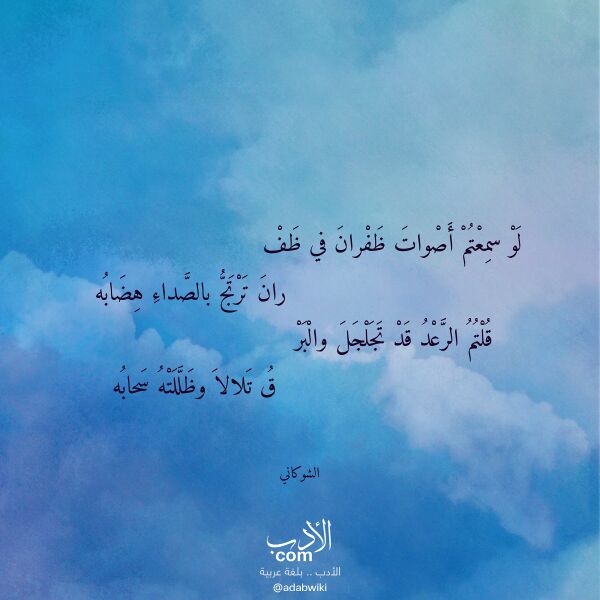 لَوْ سمِعْتُمْ أَصْواتَ ظَفْرانَ في ظَفْ
رانَ تَرْتَجُّ بالصَّداءِ هِضَابُه
قُلْتُمُ الرَّعْدُ قَدْ تَجَلْجَلَ والْبَرْ
قُ تَلالاَ وظَلَّلَتْهُ سَحابُه
الشوكاني
الأدب
com
الأدب .. بلغة عربية
@adabwiki